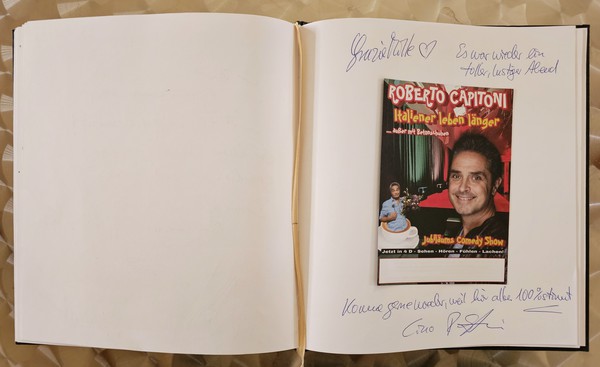 Grazie Mille
Es war wieder ein
toller, lustiger Abend
ROBERTO CAPITONI
Italiener leben länger
... außer mit Betonschuhen
Jubiläums Comedy Show
Jetzt in 4 D - Sehen - Hören - Fühlen - Lachen!
Komme gerne wieder, weil hier alles 100% stimmt
Ciao